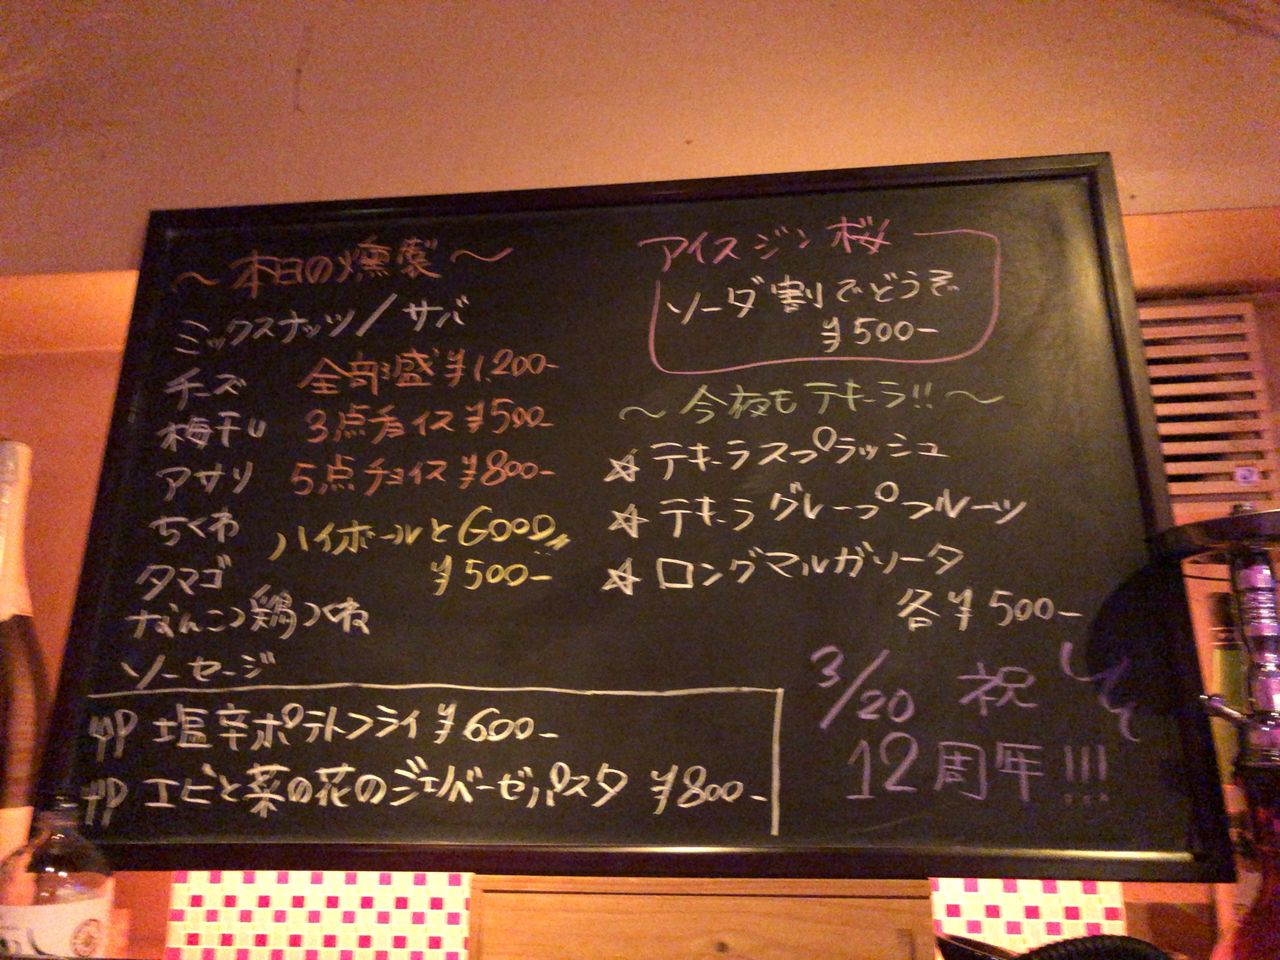 〜本日の燻製〜
ミックスナッツ/サバ
チーズ 全部盛¥1,200-
梅干し 3点チョイス¥500-
アサリ 5点チョイス¥800-
ちくわ ハイボールとGOOD
タマゴ ¥500-
なんこつ鶏つくね
ソーセージ
塩辛ポテトフライ¥600-
エビと菜の花のジェノバーゼパスタ ¥800-
アイスジン桜
ソーダ割でどうぞ
¥500-
〜今夜もテキーラ!!〜
☆テキーラスプラッシュ
☆テキーラグレープフルーツ
☆ロングマルガリータ
各¥500-
3/20 祝
12周年!!!